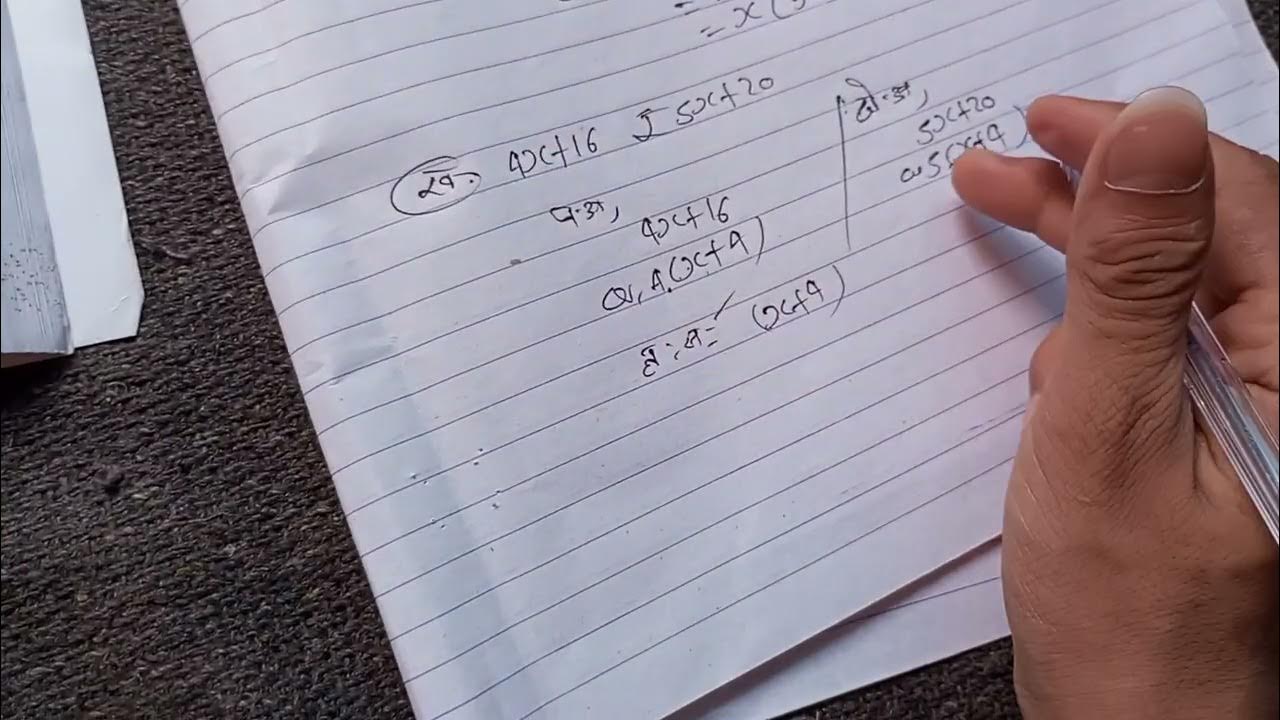 = x(
4x+16 र 5x+20
प.अ,
4x+16
or, 4(x+4)
म.स= (x+4)
दो.अ,
5x+20
or 5(x+4)